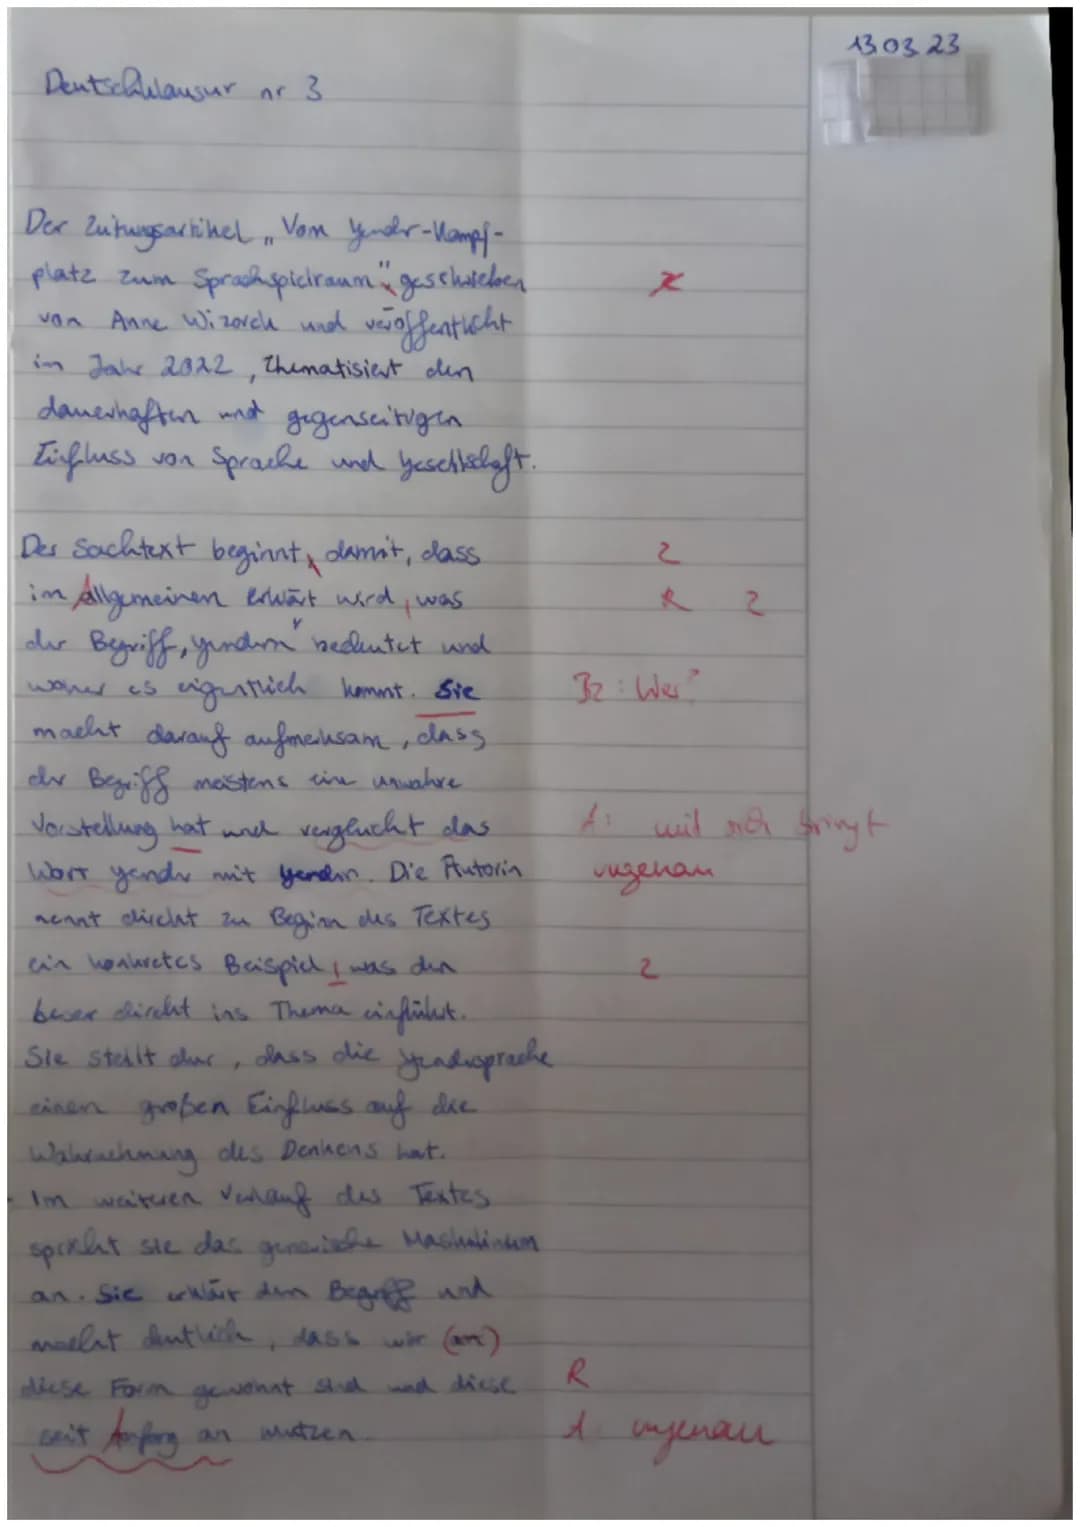 13.03.23
Deutschklausur nr 3
Der Zeitungsartikel „Vom Gender-Kampf-
platz zum Sprachspielraum" geschrieben
von Anne Wizorek und veröffentlicht
im Jahr 2022, thematisiert den
dauerhaften und gegenseitigen
Einfluss von Sprache und Gesellschaft.
Der Sachtext beginnt, damit, dass Z
im Allgemeinen erklärt wird, was R Z
der Begriff „gendern" bedeutet und
woher es eigentlich kommt. Sie Bz: Wer?
macht darauf aufmerksam, dass
der Begriff meistens eine unwahre
Vorstellung hat und vergleicht das A: mit sich bringt
Wort gender mit gendern. Die Autorin ungenau
nennt direkt zu Beginn des Textes
ein konkretes Beispiel, was den Z
Leser direkt ins Thema einführt.
Sie stellt dar, dass die Gendersprache
einen großen Einfluss auf die
Wahrnehmung des Denkens hat.
Im weiteren Verlauf des Textes
spricht sie das generische Maskulinum
an. Sie erklärt den Begriff und
macht deutlich, dass wir (an)
diese Form gewohnt sind und diese R
seit Anfang an nutzen. A: ungenau